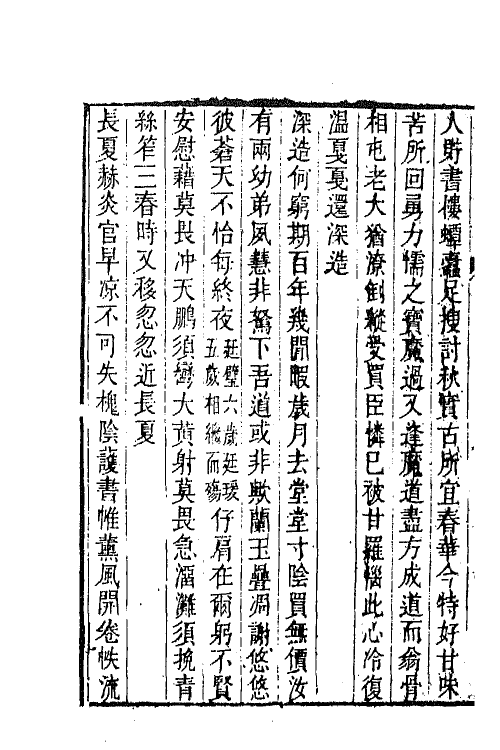 人貯書樓蟫蠹足搜討秋實古所宜春華今特好甘味
苦所回勇力懦之寶魔過又逢魔道盡方成道而翁骨
相屯老大猶潦倒縱受買臣憐已被甘羅惱此心冷復
溫戛戛還深造
深造何窮期百年幾閒暇歲月去堂堂寸陰買無價汝
有兩幼弟夙慧非駑下吾道或非歟蘭玉疊凋謝悠悠
彼蒼天不怡每終夜廷璧六歲廷瑗五歲相繼而殤仔肩在爾躬不賢
安慰藉莫畏冲天鵬須彎大黃射莫畏急滔灘須挽青
絲笮三春時又移忽忽近長夏
長夏赫炎官早凉不可失槐陰護書帷薰風開卷帙流